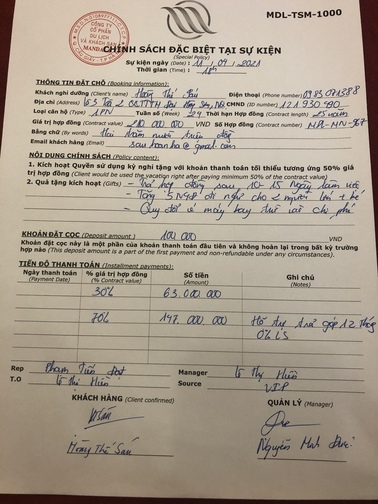 MDL-TSM-1000
CÔNG TY CỔ PHẦN DU LỊCH VÀ KHÁCH SẠN MANDALA
CHÍNH SÁCH ĐẶC BIỆT TẠI SỰ KIỆN
(Special Policy)
Sự kiện ngày (Date) : 11 / 04 / 2021
Thời gian (Time) : 1PM
THÔNG TIN ĐẶT CHỖ (Booking information):
Khách nghỉ dưỡng (Client's name) Hoàng Thế Sáu Điện thoại (Phone number)
Địa chỉ (Address) CMND (ID number) 121930980
Loại căn hộ (Type) 1PN Tuần số (Week) 29 Thời hạn Hợp đồng (Contract length)
Giá trị hợp đồng (Contract value) 210 000 000 VND Số Hợp đồng (Contract number) MDL-HN-
Bằng chữ (By words) hai trăm mười triệu đồng
Email khách hàng (Email) @gmail.com
NỘI DUNG CHÍNH SÁCH (Policy content):
1. Kích hoạt Quyền sử dụng kỳ nghỉ tặng với khoản thanh toán tối thiểu tương ứng 50% giá
trị hợp đồng (Client could be used the vacation right after paying minimum 50% of the contract value)
2. Quà tặng kích hoạt (Gifts) - hợp đồng sau 10-15 ngày làm việc
- Tặng 5N4Đ nghỉ cho 2 người lớn + bé
- Quy đổi vé máy bay
KHOẢN ĐẶT CỌC (Deposit amount ) 100 000 VND
Khoản đặt cọc này là một phần của khoản thanh toán đầu tiên và không hoàn lại trong bất kỳ trường
hợp nào (This deposit amount is a part of the first payment and non-refundable under any circumstances).
TIẾN ĐỘ THANH TOÁN (Installment payments):
Ngày thanh toán % giá trị hợp đồng Số tiền Ghi chú
(Payment Date) (% Contract value) (Amount) (Notes)
30% 63.000.000
70% 147.000.000 Hỗ trợ trả góp 12 tháng
0% LS
Rep Phạm Tiến Đạt Manager Lô Thị Hiền
T.O Lô Thị Hiền Source VIP
KHÁCH HÀNG (Client confirmed) QUẢN LÝ (Manager)
Hoàng Thế Sáu Nguyễn Minh Đức